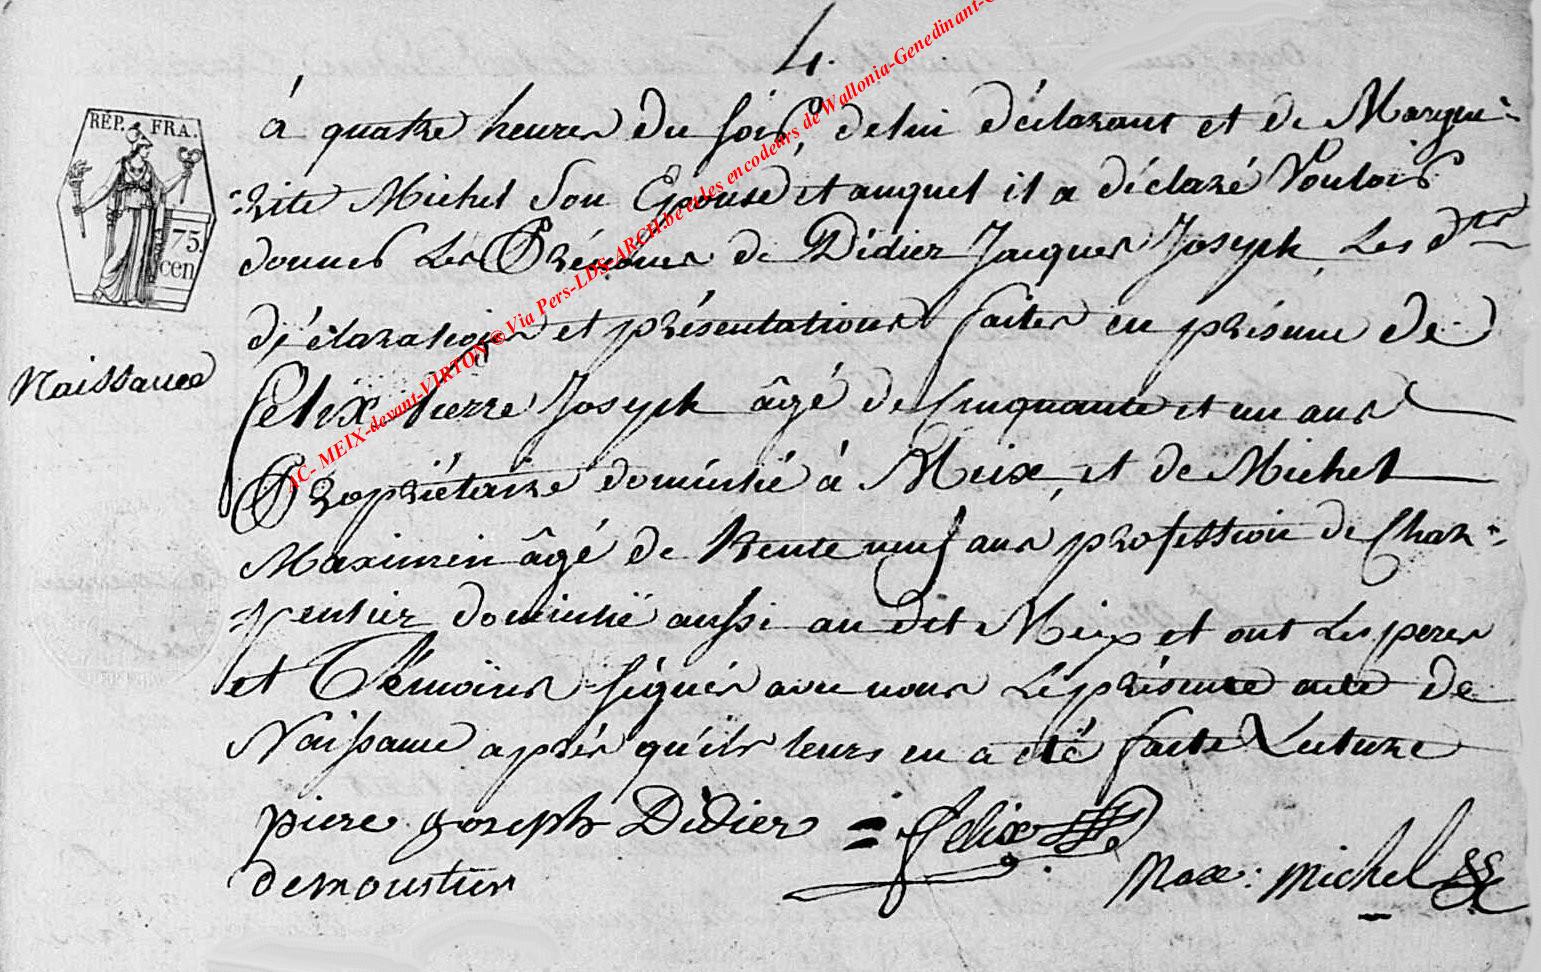 4.
à quatre heures du soir, de lui déclarant et de Margue-
-rite Michel Son Epouse, et auquel il a déclaré Vouloir
donner Les Prénoms de Didier Jacques Joseph, Les dtes
déclaration et présentations faites en présence de
Felix Pierre Joseph âgé de Cinquante et un ans
Propriétaire domicilié à Meix, et de Michel
Maximin âgé de trente neuf ans profession de Char-
-pentier domicilié aussi au dit Meix et ont Les peres
et Témoins signés avec nous Le présent acte de
Naissance après qu'ils leurs en a été faite Lecture
piere joseph Didier = felix
demoustier
Max: Michel
REP. FRA.
75.
cen
Naissance
JC- MEIX-devant-VIRTON ® Via Pers-LDS-ARCH.be et les encodeurs de Wallonia-Genedinant-